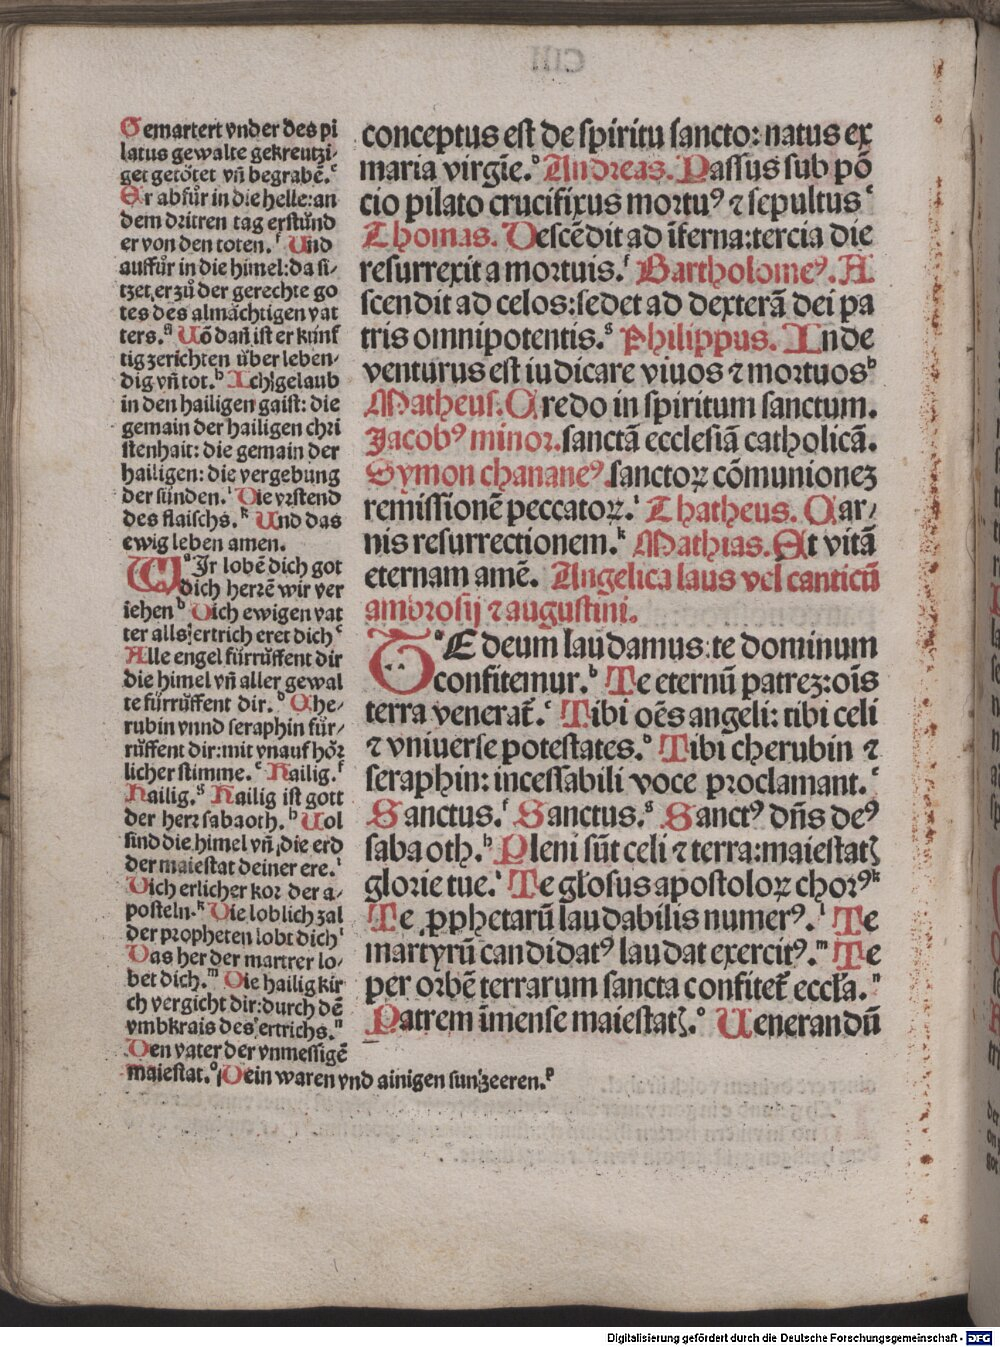 Gemartert vnder des pi
latus gewalte gekreutzi⸗
get getötet vñ begrabē.ᵉ
Er abfůr in die helle:an
dem dritten tag erstůnd
er von den toten.ᶠ Und
auffůr in die himel:da si⸗
tzet er zů der gerechte go
tes des almächtigen vat
ters.ᵍ Uō dañ ist er künf
tig zerichten über leben⸗
dig vñ tot.ʰ Ich gelaub
in den hailigen gaist: die
gemain der hailigen chri
stenhait: die gemain der
hailigen: die vergebung
der sünden.ⁱ Die vrstend
des flaischs.ᵏ Und das
ewig leben amen.
Wᵃ Ir lobē dich got
dich herrē wir ver
iehen ᵇ Dich ewigen vat
ter alls ertrich eret dich ᶜ
Alle engel fürrüffent dir
die himel vñ aller gewal
te fürrüffent dir.ᵈ Che⸗
rubin vnnd seraphin für⸗
rüffent dir:mit vnaufhör
licher stimme.ᵉ Hailig.ᶠ
Hailig.ᵍ Hailig ist gott
der herr sabaoth.ʰ Uol
sind die himel vñ die erd
der maiestat deiner ere.ⁱ
Dich erlicher kor der a⸗
posteln.ᵏ Die loblich zal
der propheten lobt dich ˡ
Das her der martrer lo⸗
bet dich.ᵐ Die hailig kir
ch vergicht dir:durch dē
vmbkrais des ertrichs.ⁿ
Den vater der vnmessigē
maiestat.ᵒ Dein waren vnd ainigen sun zeeren.ᵖ
conceptus est de spiritu sancto: natus ex
maria virgīe.ᵈ Andreas. Passus sub pō
cio pilato crucifixus mortuꝰ ⁊ sepultus ᵉ
Thomas. Descēdit ad īferna:tercia die
resurrexit a mortuis.ᶠ Bartholomeꝰ. A
scendit ad celos:sedet ad dexterā dei pa
tris omnipotentis.ᵍ Philippus. Inde
venturus est iudicare viuos ⁊ mortuos ʰ
Matheus. Credo in spiritum sanctum.
Jacobꝰ minor. sanctā ecclesiā catholicā.
Symon chananeꝰ. sanctoꝝ cōmunionez
remissionē peccatoꝝ.ⁱ Thatheus. Car⸗
nis resurrectionem.ᵏ Mathias. Et vitā
eternam amē. Angelica laus vel canticū
ambrosij ⁊ augustini.
Tᵃ E deum laudamus: te dominum
confitemur.ᵇ Te eternū patrez:oīs
terra venerat̄.ᶜ Tibi oēs angeli: tibi celi
⁊ vniuerse potestates.ᵈ Tibi cherubin ⁊
seraphin: incessabili voce proclamant.ᵉ
Sanctus.ᶠ Sanctus.ᵍ Sanctꝰ dñs deꝰ
sabaoth.ʰ Pleni sūt celi ⁊ terra:maiestatꝭ
glorie tue.ⁱ Te gl̄osus apostoloꝝ chorꝰ ᵏ
Te ꝓphetarū laudabilis numerꝰ.ˡ Te
martyrū candidatꝰ laudat exercitꝰ.ᵐ Te
per orbē terrarum sancta confitet̄ eccl̄a.ⁿ
Patrem īmense maiestatꝭ.ᵒ Uenerandū
Digitalisierung gefördert durch die Deutsche Forschungsgemeinschaft - DFG